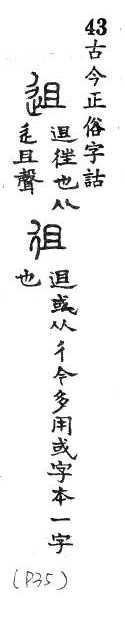 43 古今正俗字詁
䢐
䢐徃也从
辵且聲
徂
䢐或从彳今多用或字本一字
也
(P35)